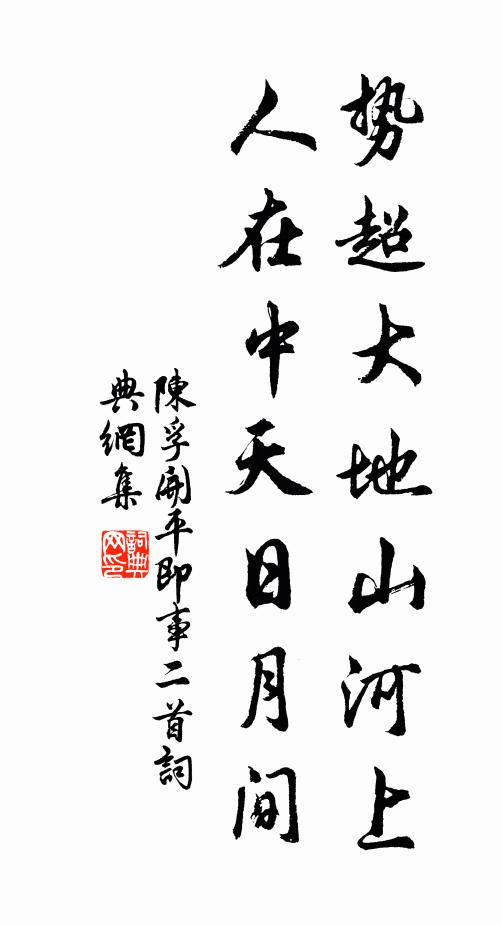 势超大地山河上
人在中天日月间
陳孚開平即事二首詞
典網集
詞典网印